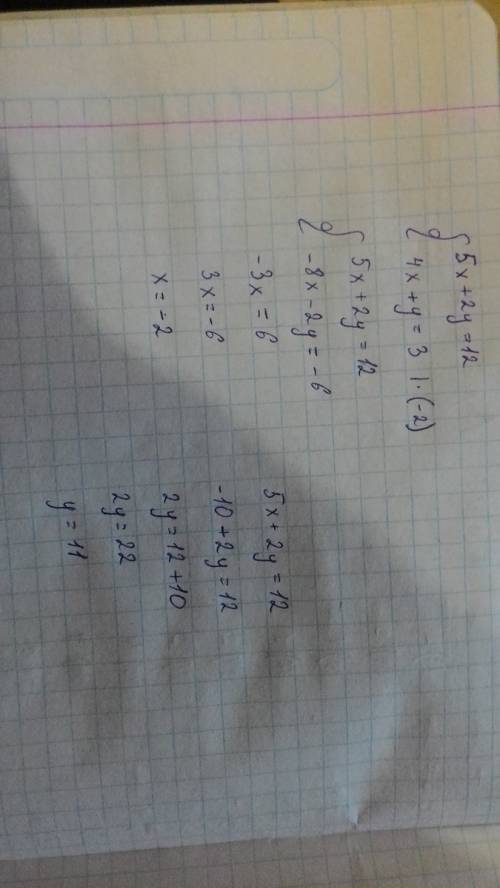 5x+2y=12
4x+y=3 |·(-2)
5x+2y=12
-8x-2y=-6
-3x=6
3x=-6
x=-2
5x+2y=12
-10+2y=12
2y=12+10
2y=22
y=11